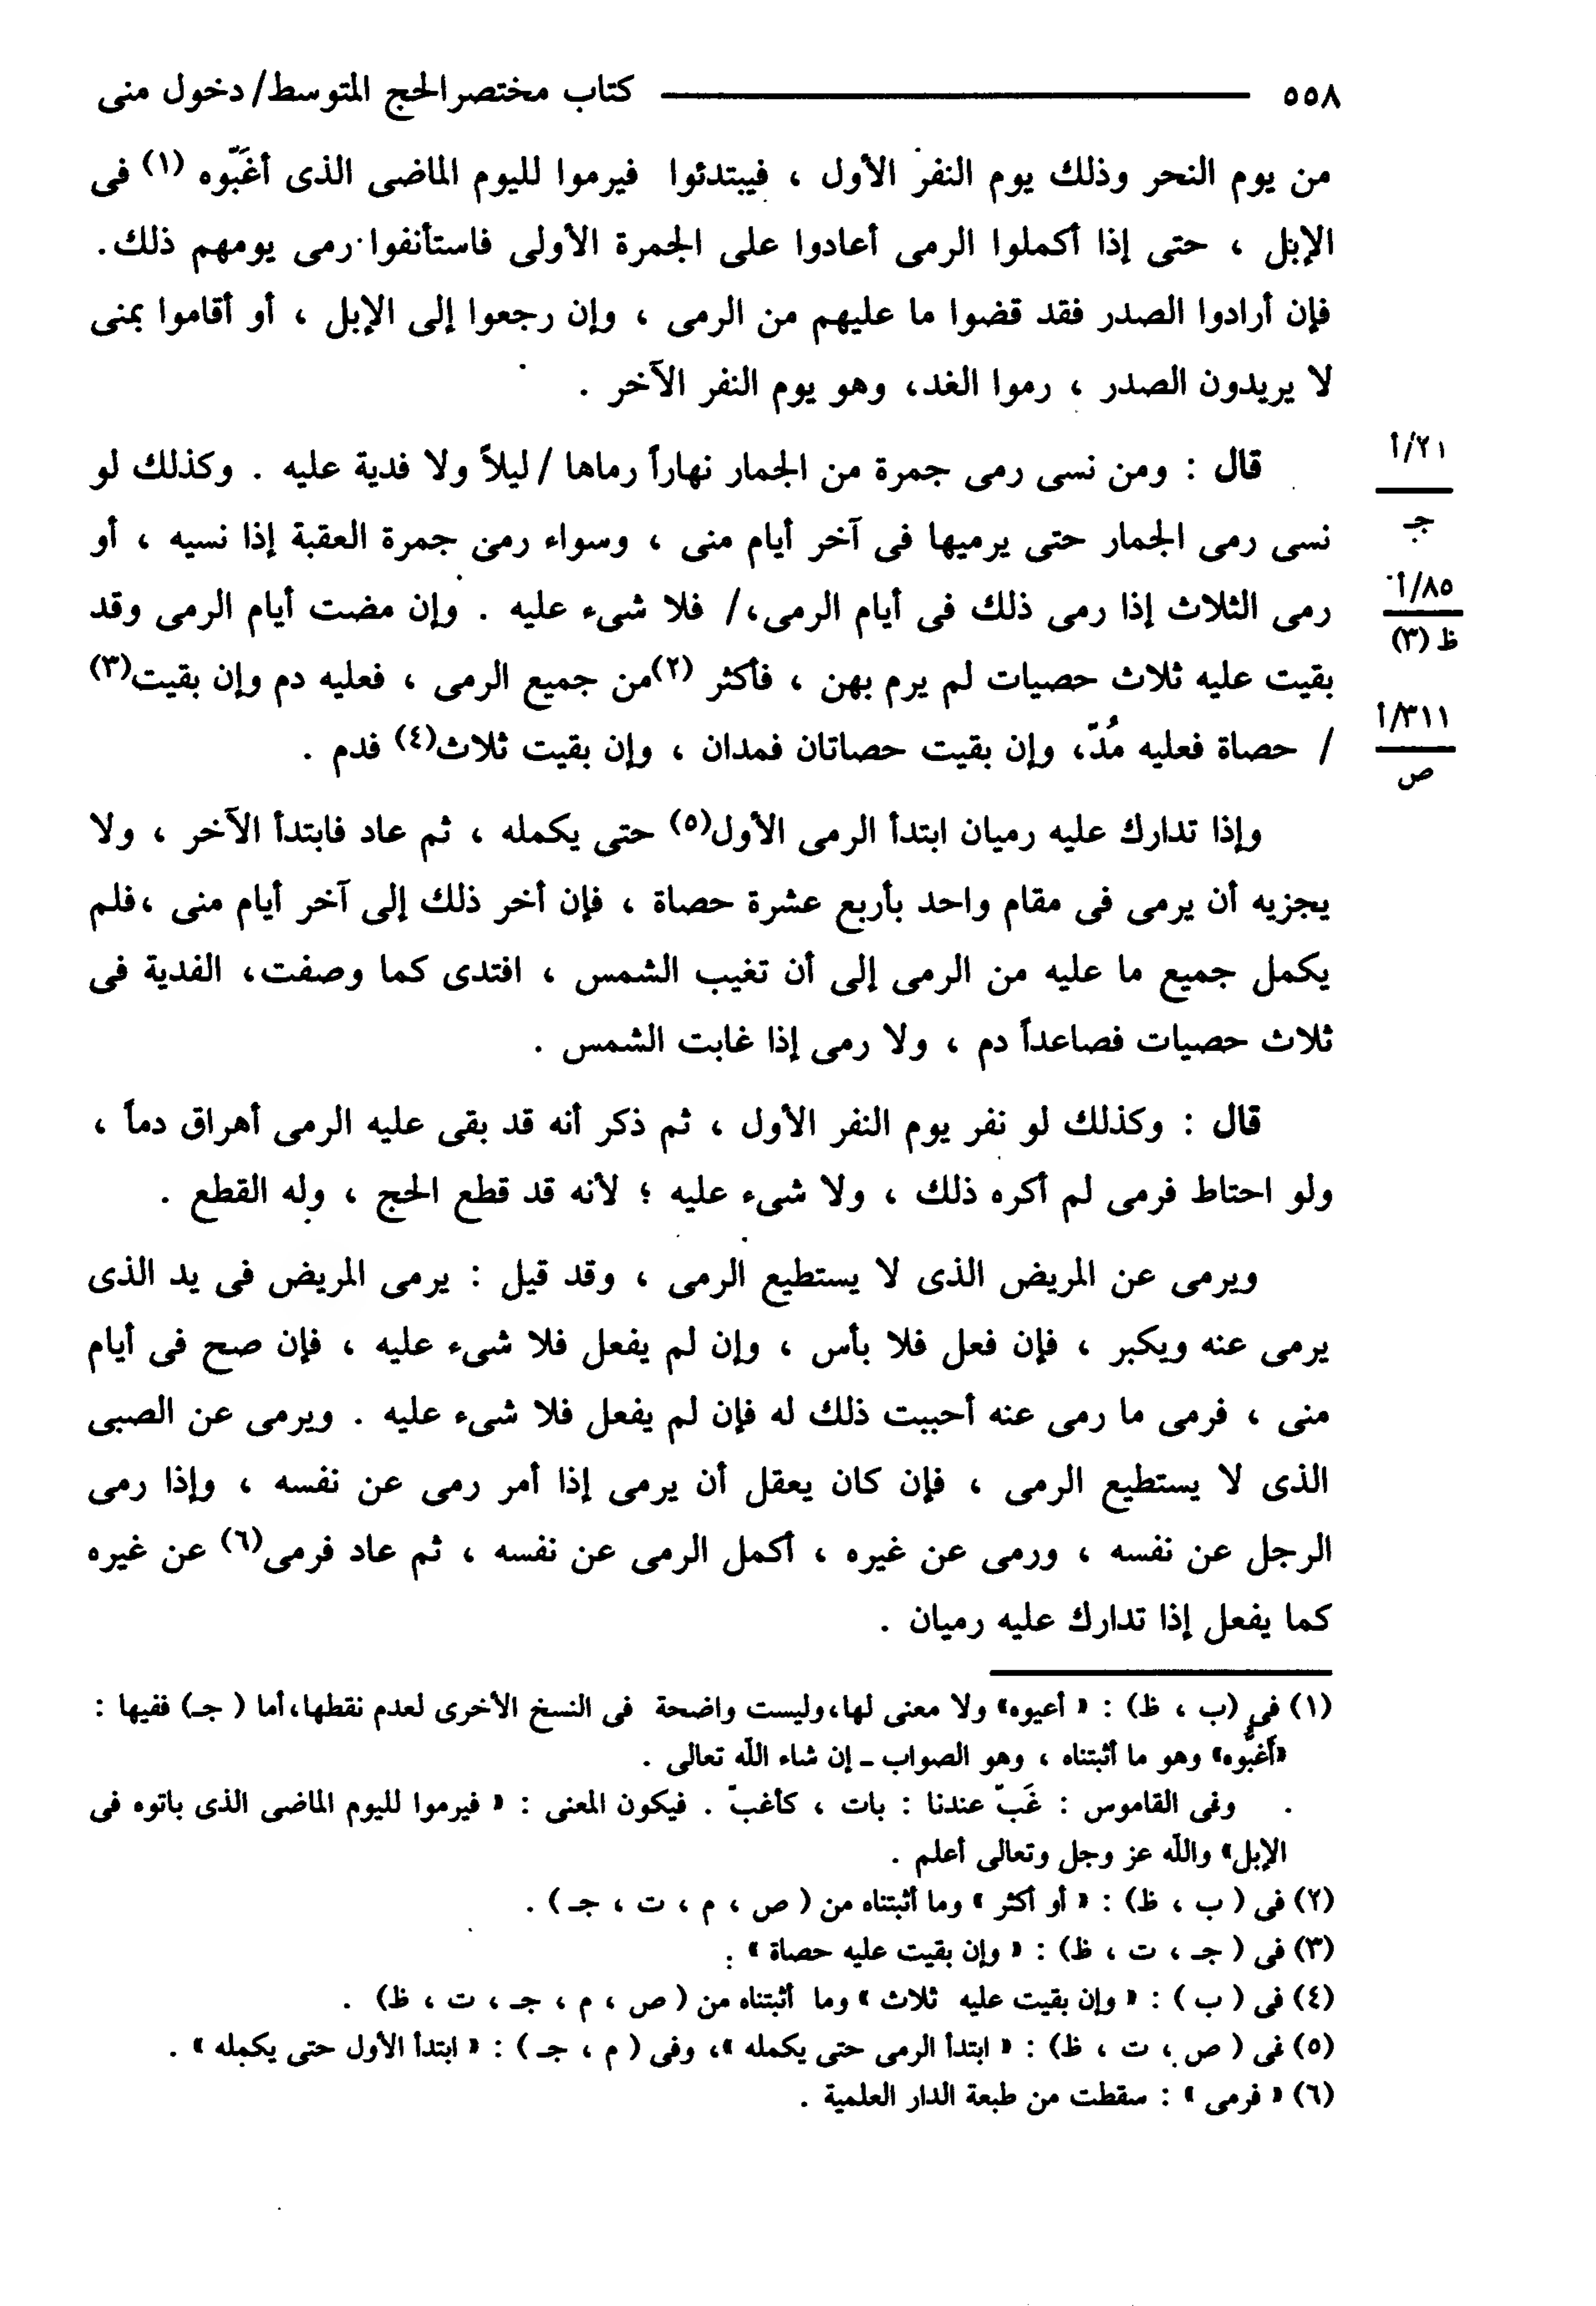 ٥٥٨ كتاب مختصر الحج المتوسط/ دخول منى
من يوم النحر وذلك يوم النفر الأول ، فيبتدئوا فيرموا لليوم الماضى الذى أغَبّوه (١) فى
الإبل ، حتى إذا أكملوا الرمى أعادوا على الجمرة الأولى فاستأنفوا رمى يومهم ذلك.
فإن أرادوا الصدر فقد قضوا ما عليهم من الرمى ، وإن رجعوا إلى الإبل ، أو أقاموا بمنى
لا يريدون الصدر ، رموا الغد، وهو يوم النفر الآخر .
قال : ومن نسى رمى جمرة من الجمار نهاراً رماها / ليلاً ولا فدية عليه . وكذلك لو
٢١/أ
جـ
نسى رمى الجمار حتى يرميها فى آخر أيام منى ، وسواء رمى جمرة العقبة إذا نسيه ، أو
رمى الثلاث إذا رمى ذلك فى أيام الرمى،/ فلا شىء عليه . وإن مضت أيام الرمى وقد
٨٥/أ
ظ (٣)
بقيت عليه ثلاث حصيات لم يرم بهن ، فأكثر (٢)من جميع الرمى ، فعليه دم وإن بقيت(٣)
/ حصاة فعليه مُدّ، وإن بقيت حصاتان فمدان ، وإن بقيت ثلاث(٤) فدم .
٣١١/أ
ص
وإذا تدارك عليه رميان ابتدأ الرمى الأول(٥) حتى يكمله ، ثم عاد فابتدأ الآخر ، ولا
يجزيه أن يرمى فى مقام واحد بأربع عشرة حصاة ، فإن أخر ذلك إلى آخر أيام منى ،فلم
يكمل جميع ما عليه من الرمى إلى أن تغيب الشمس ، افتدى كما وصفت، الفدية فى
ثلاث حصيات فصاعداً دم ، ولا رمى إذا غابت الشمس .
قال : وكذلك لو نفر يوم النفر الأول ، ثم ذكر أنه قد بقى عليه الرمى أهراق دماً ،
ولو احتاط فرمى لم أكره ذلك ، ولا شىء عليه ؛ لأنه قد قطع الحج ، وله القطع .
ويرمى عن المريض الذى لا يستطيع الرمى ، وقد قيل : يرمى المريض فى يد الذى
يرمى عنه ويكبر ، فإن فعل فلا بأس ، وإن لم يفعل فلا شىء عليه ، فإن صح فى أيام
منى ، فرمى ما رمى عنه أحببت ذلك له فإن لم يفعل فلا شىء عليه . ويرمى عن الصبى
الذى لا يستطيع الرمى ، فإن كان يعقل أن يرمى إذا أمر رمى عن نفسه ، وإذا رمى
الرجل عن نفسه ، ورمى عن غيره ، أكمل الرمى عن نفسه ، ثم عاد فرمى(٦) عن غيره
كما يفعل إذا تدارك عليه رميان .
(١) فى (ب ، ظ) : « أعيوه» ولا معنى لها،وليست واضحة فى النسخ الأخرى لعدم نقطها،أما ( جـ) ففيها :
«أَغبُّوه» وهو ما أثبتناه ، وهو الصواب ـ إن شاء الله تعالى .
وفى القاموس : غَبّ عندنا : بات ، كأغبّ . فيكون المعنى : « فيرموا لليوم الماضى الذى باتوه فى
الإبل» والله عز وجل وتعالى أعلم .
(٢) فى ( ب ، ظ) : « أو أكثر » وما أثبتناه من ( ص ، م ، ت ، جـ ) .
(٣) فى ( جـ ، ت ، ظ) : « وإن بقيت عليه حصاة » .
(٤) فى ( ب ) : « وإن بقيت عليه ثلاث » وما أثبتناه من ( ص ، م ، جـ ، ت ، ظ) .
(٥) فى ( ص ، ت ، ظ) : « ابتدأ الرمى حتى يكمله »، وفى ( م ، جـ ) : « ابتدأ الأول حتى يكمله » .
(٦) « فرمى » : سقطت من طبعة الدار العلمية .